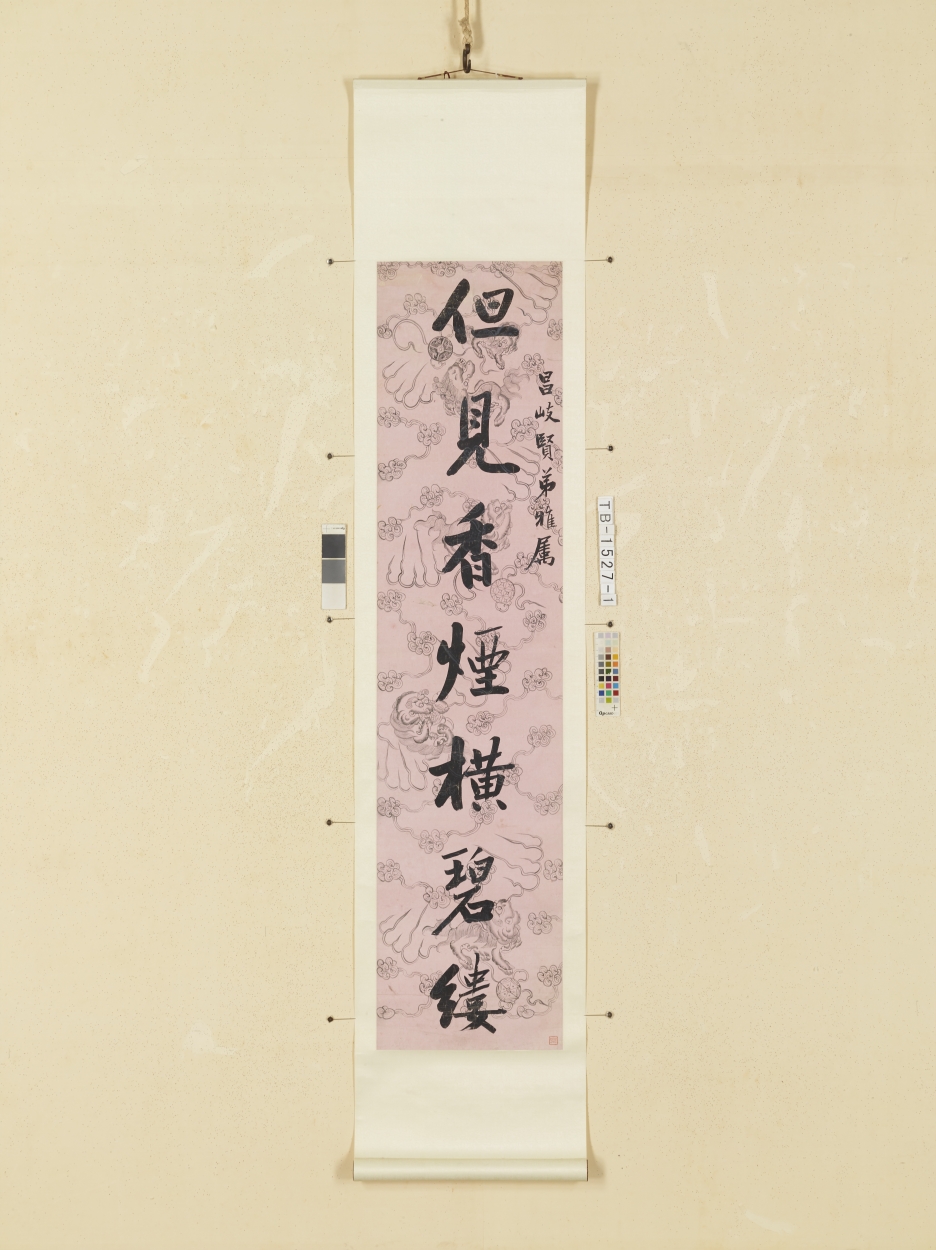 昌岐賢弟雅属
但見香煙橫碧縷
TB-1527-1